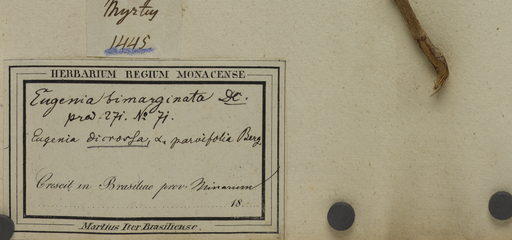 Myrtus
1445
HERBARIUM REGIUM MONACENSE
Eugenia bimarginata DC.
prod. 271. No 71.
Eugenia dicrossa, α. parvifolia Berg.
Crescit in Brasiliae prov. Minarum
18
Martius Iter Brasiliense.